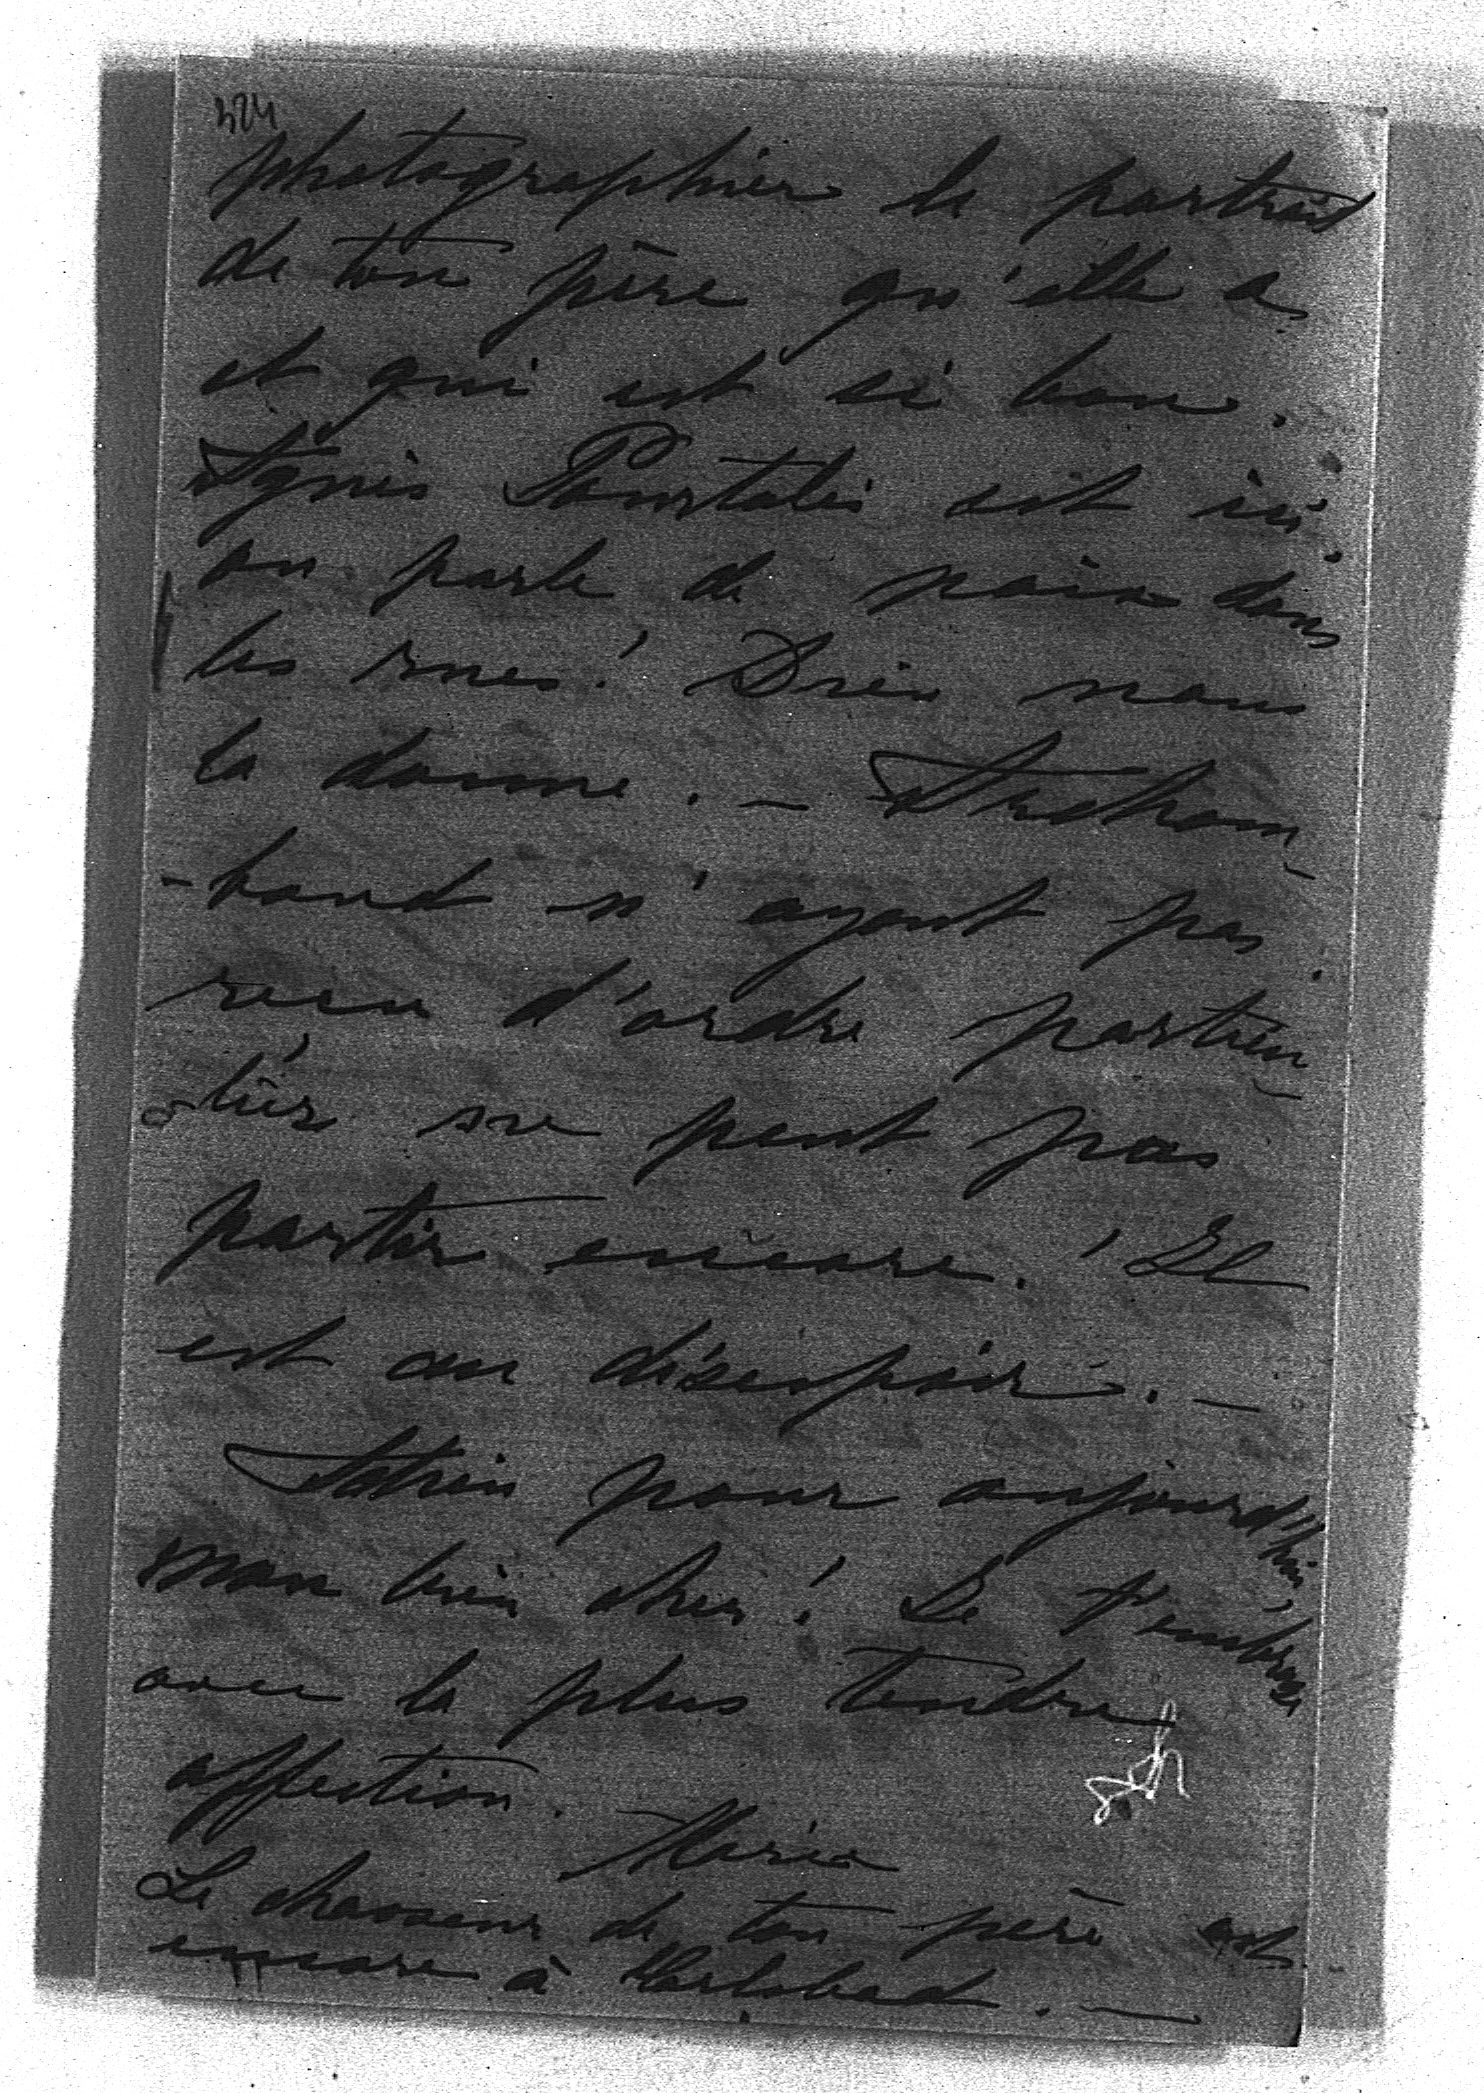 424
photographier le portrait
de ton père qu'elle a
et qui est si bon.
Agnès Pourtalès est ici.
on parle de paix dans
les rues! Dieu nous
la donne. —
-baud n'ayant pas
reçu d'ordre particu-
-lier ne peut pas
partir encore! Il
est au désespoir. —
Adieu pour aujourd'hui,
mon bien cher! Je t'embrasse
avec la plus tendre
affection.
Marie
Le chasseur de ton père est
encore à Karlsbad. —